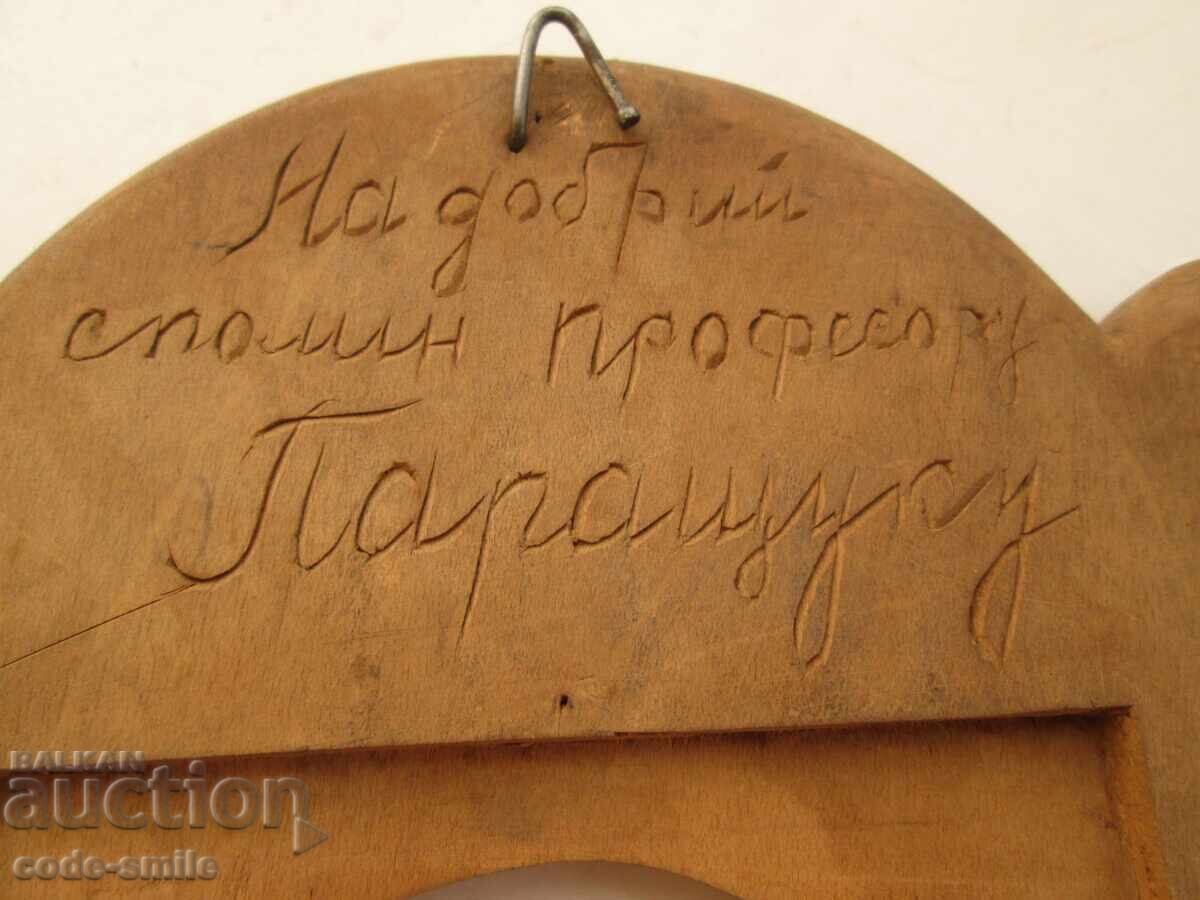 На добрий
спомин професору
Паращуку
BALKAN
auction
code-smile